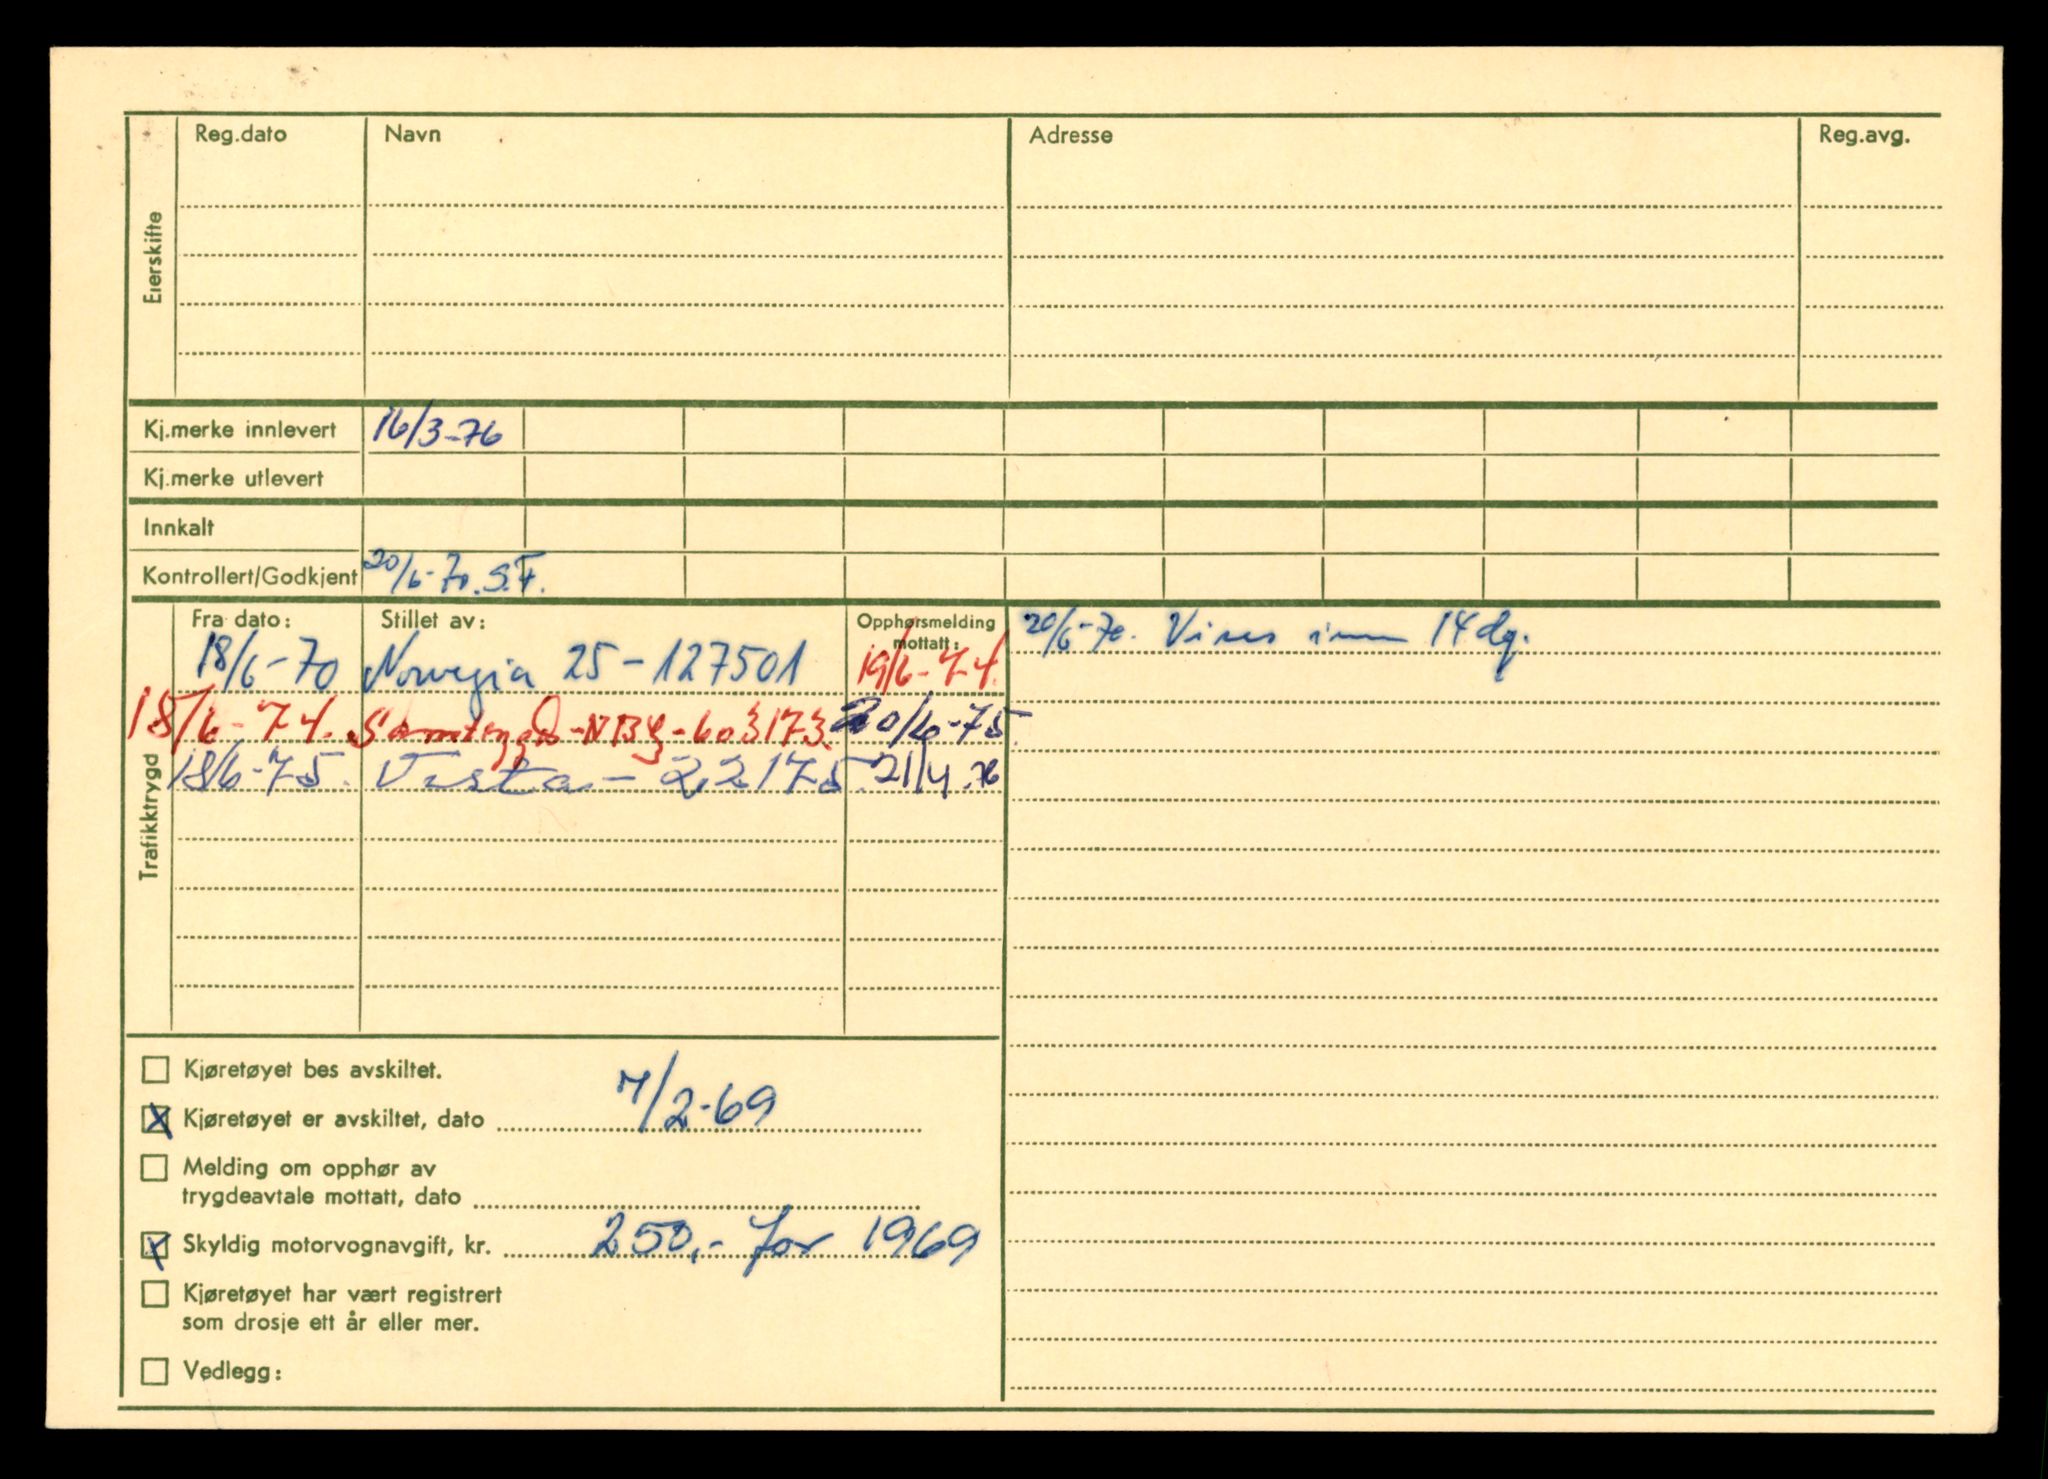 Reg.dato Navn Adresse Reg.avg.
Eierskifte
Kj.merke innlevert 16/3-76
Kj.merke utlevert
Innkalt
Kontrollert/Godkjent 20/6-70. S.F.
Trafikktrygd
Fra dato: Stillet av: Opphørsmelding mottatt:
18/6-70 Norvegia 25-127501 19/6-74.
18/6-74. Samtrygd - 603173 20/6-75.
18/6-75. Vesta - 22175. 21/4.76
20/6-70. Vises inn 14 dg.
Kjøretøyet bes avskiltet.
X Kjøretøyet er avskiltet, dato 7/2-69
Melding om opphør av
trygdeavtale mottatt, dato
X Skyldig motorvognavgift, kr. 250,- for 1969
Kjøretøyet har vært registrert
som drosje ett år eller mer.
Vedlegg: